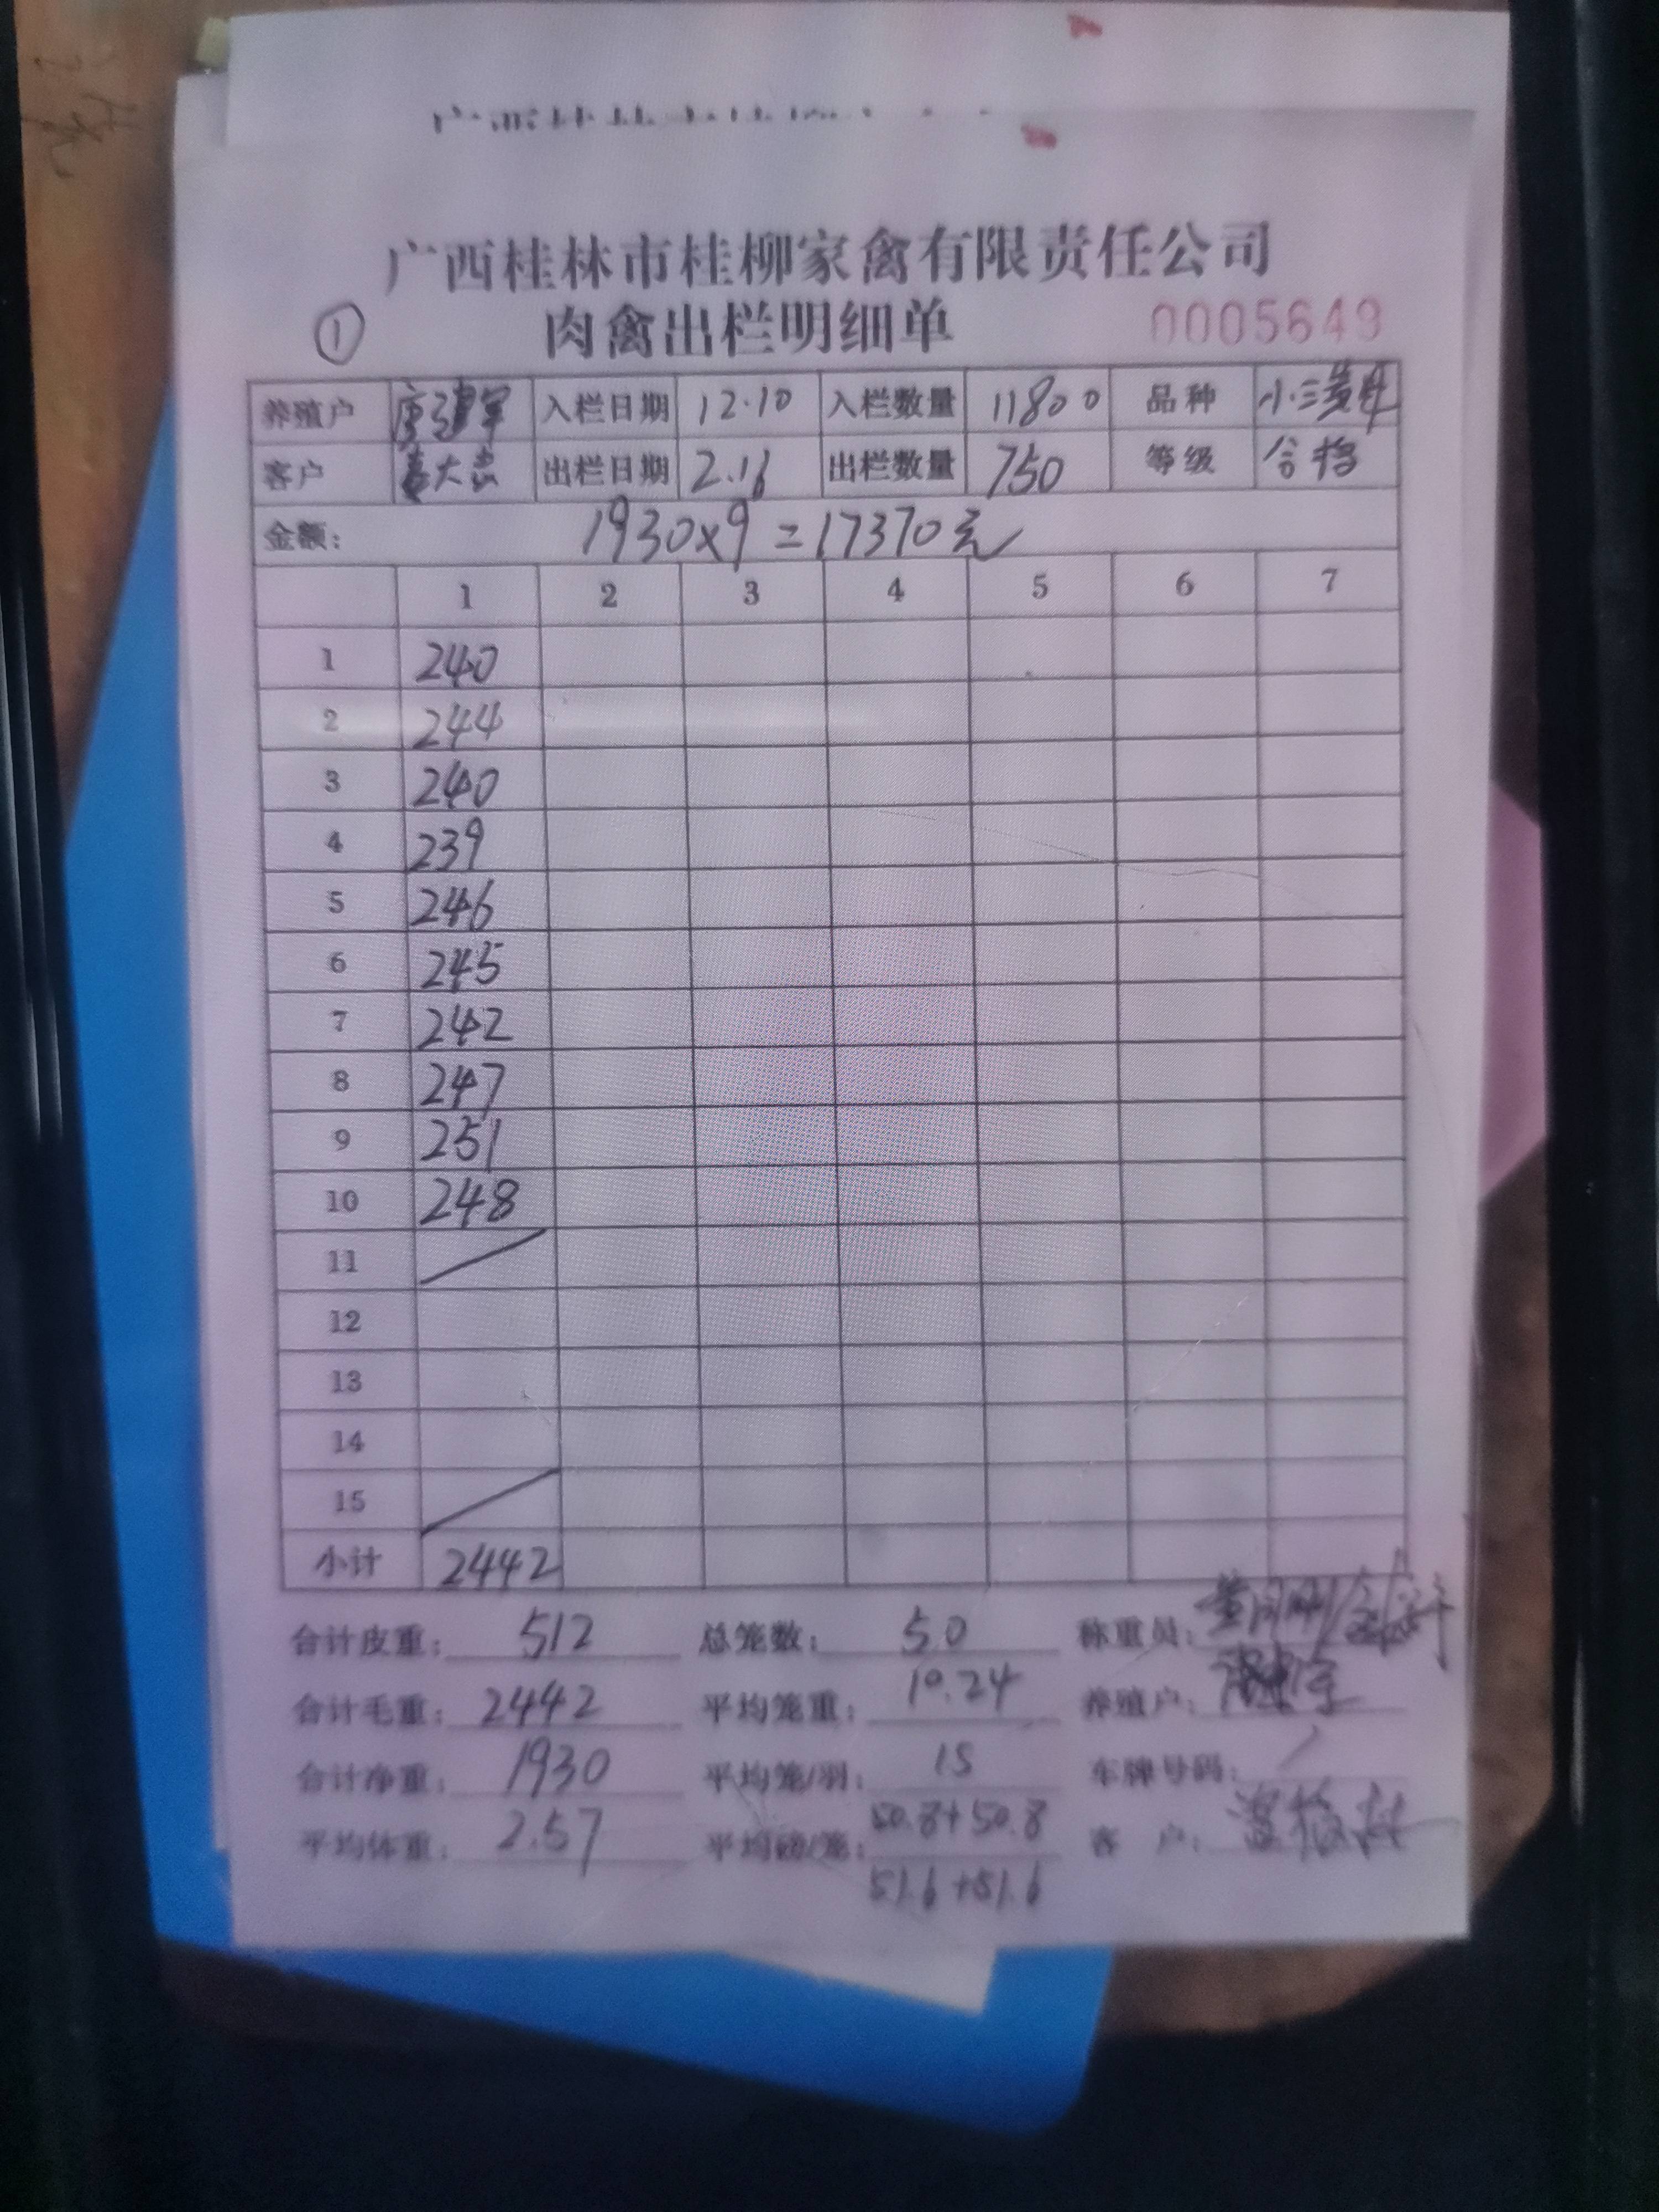 广西桂林市桂柳家禽有限责任公司
① 肉禽出栏明细单 0005649
养殖户 唐建军 入栏日期 12.10 入栏数量 11800 品种
客户 出栏日期 2.16 出栏数量 750 等级 合格
金额: 1930×9=17370元
1 2 3 4 5 6 7
1 240
2 244
3 240
4 239
5 246
6 245
7 242
8 247
9 251
10 248
11
12
13
14
15
小计 2442
合计皮重: 512 总笼数: 50 称重员:
合计毛重: 2442 平均笼重: 10.24 养殖户:
合计净重: 1930 平均笼/羽: 15 车牌号码: /
平均体重: 2.57 平均磅/笼: 50.8+50.8 客 户:
51.6+51.6